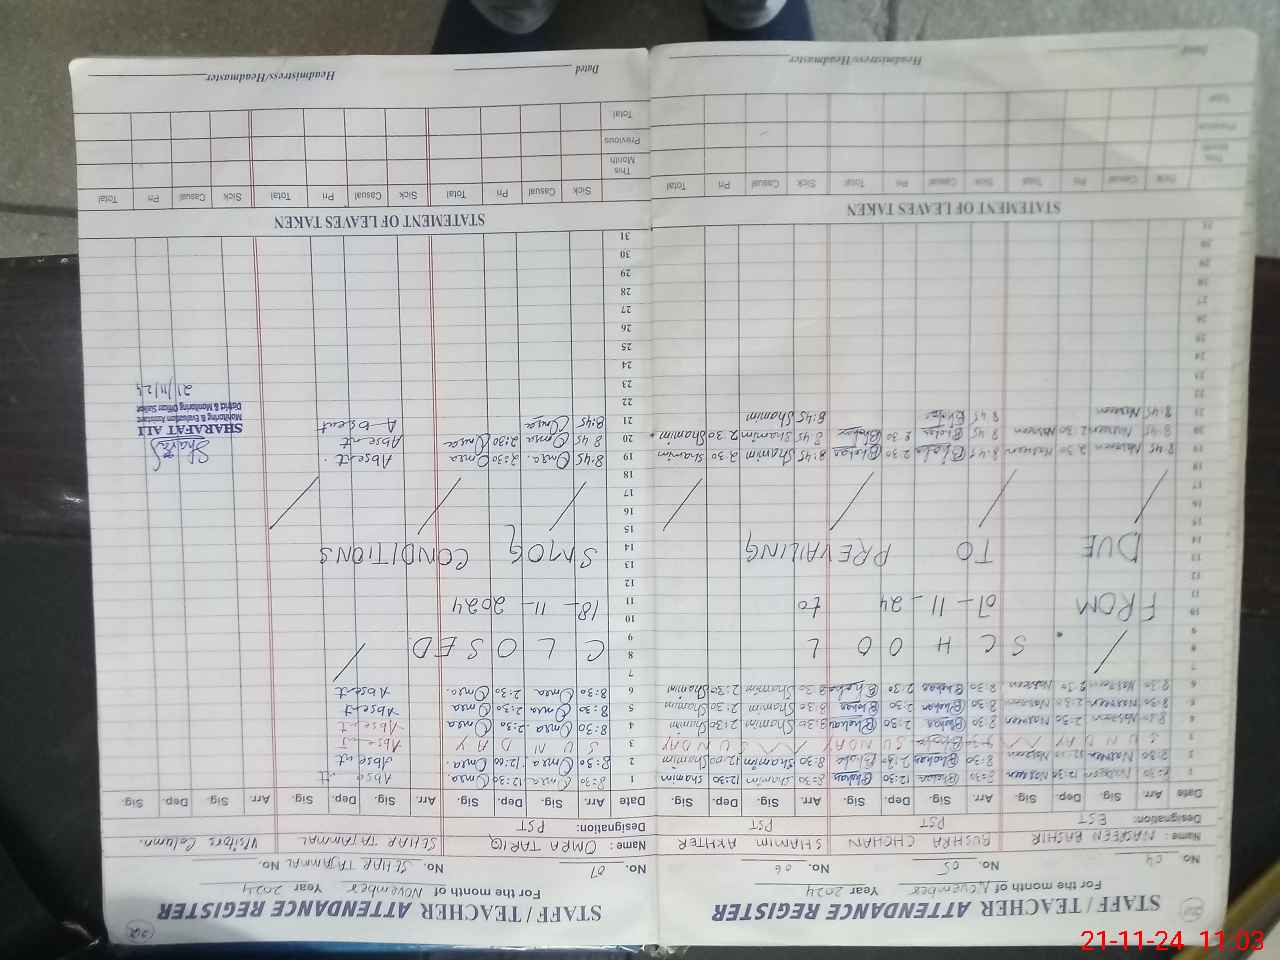 STAFF / TEACHER ATTENDANCE REGISTER
For the month of November Year 2024
No. 04 No. 05 No. 06
Name: NASREEN BASHIR BUSHRA CHOHAN SHAMIM AKHTER
Designation: EST PST PST
Date Arr. Sig. Dep. Sig. Arr. Sig. Dep. Sig. Arr. Sig. Dep. Sig.
1 8:30 Nasreen 12:30 Nasreen 8:30 12:30 8:30 Shamim 12:30 Shamim
2 8:30 Nasreen 12:00 Nasreen 8:30 12:00 8:30 Shamim 12:00 Shamim
3 SUNDAY SUNDAY SUNDAY
4 8:30 Nasreen 2:30 Nasreen 8:30 2:30 8:30 Shamim 2:30 Shamim
5 8:30 Nasreen 2:30 Nasreen 8:30 2:30 8:30 Shamim 2:30 Shamim
6 8:30 Nasreen 2:30 Nasreen 8:30 2:30 8:30 Shamim 2:30 Shamim
7
8 SCHOOL
9
10 FROM 07-11-24 to
11
12
13 DUE TO PREVAILING
14
15
16
17
18
19 8:45 Nasreen 2:30 Nasreen 8:45 2:30 8:45 Shamim 2:30 Shamim
20 8:45 Nasreen 2:30 Nasreen 8:45 2:30 8:45 Shamim 2:30 Shamim
21 8:45 Nasreen 8:45 8:45 Shamim
22
23
24
25
26
27
28
29
30
31
STATEMENT OF LEAVES TAKEN
Sick Casual Pri Total Sick Casual Pri Total Sick Casual Pri Total
This Month
Previous
Total
Dated Headmistress/Headmaster
STAFF / TEACHER ATTENDANCE REGISTER
For the month of November Year 2024
No. 07 No. SEHAR TAJAMMAL No.
Name: OMRA TARIQ SEHAR TAJAMMAL Visitors Column.
Designation: PST
Date Arr. Sig. Dep. Sig. Arr. Sig. Dep. Sig. Arr. Sig. Dep. Sig.
1 8:30 Omra 12:30 Omra Absent
2 8:30 Omra 12:00 Omra Absent
3 SUNDAY Absent
4 8:30 Omra 2:30 Omra Absent
5 8:30 Omra 2:30 Omra Absent
6 8:30 Omra 2:30 Omra Absent
7
8 CLOSED
9
10
11 18-11-2024
12
13
14 SMOG CONDITIONS
15
16
17
18
19 8:45 Omra 2:30 Omra Absent
20 8:45 Omra 2:30 Omra Absent
21 8:45 Omra Absent
SHARAFAT ALI
Monitoring & Evaluation Assistant
21/11/24
22
23
24
25
26
27
28
29
30
31
STATEMENT OF LEAVES TAKEN
Sick Casual Pri Total Sick Casual Pri Total Sick Casual Pri Total
This Month
Previous
Total
Dated Headmistress/Headmaster
21-11-24 11:03